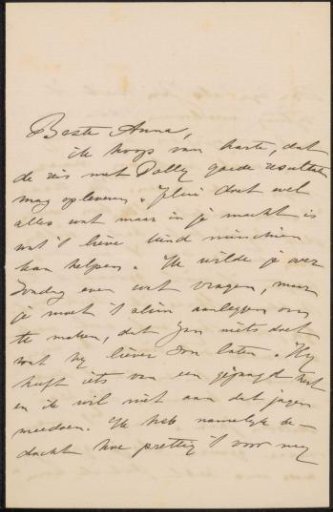 Beste Anna,
ik hoop van harte, dat
de reis met Dolly goede resultaten
mag opleveren. Jelui doet wel
alles wat maar in je macht is
wat 't lieve kind misschien
kan helpen. Ik wilde je over
Zondag even wat vragen, maar
je moet 't alleen aanleggen om
te maken, dat Jan niets doet
wat hij liever zou laten. Hij
heeft iets van een gejaagd hert
en ik wil niet aan dat jagen
meedoen. Ik heb namelijk be-
dacht hoe prettig 't voor mij